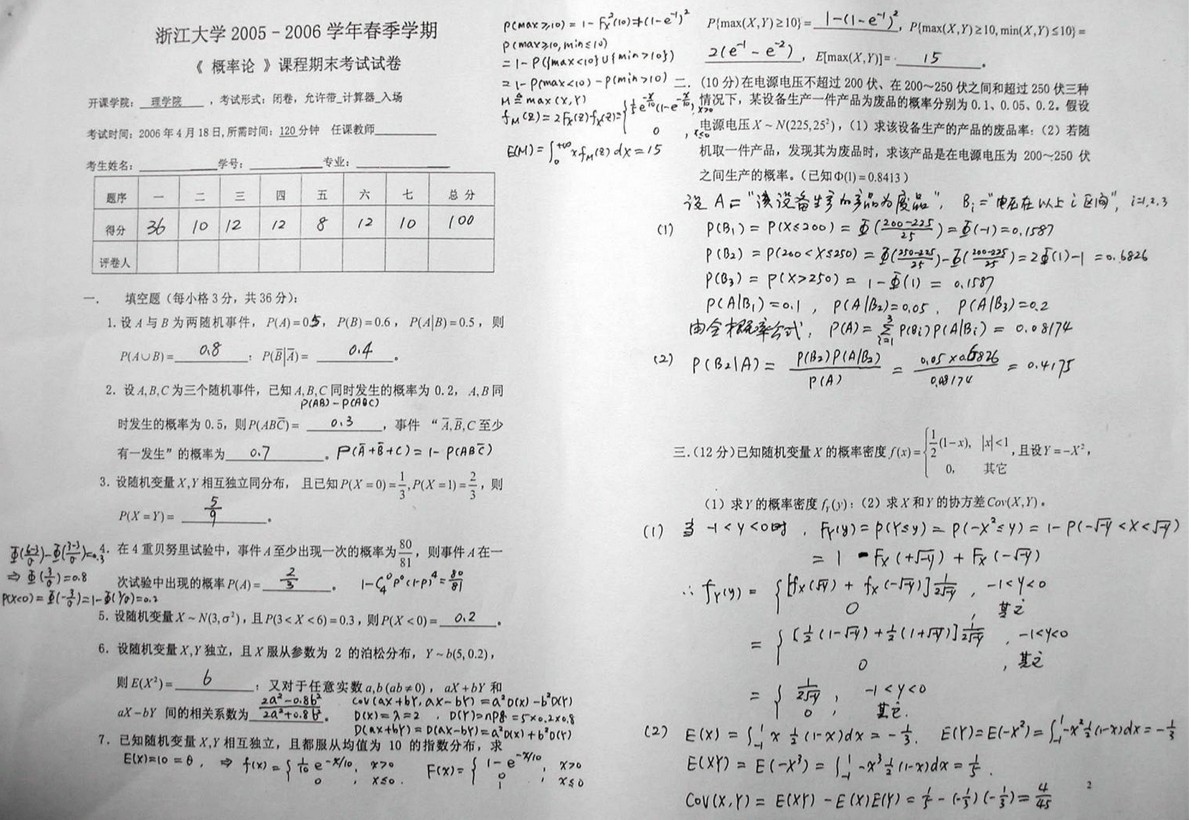 浙江大学 2005－2006 学年春季学期
《 概率论 》课程期末考试试卷
开课学院: 理学院 ，考试形式：闭卷，允许带_计算器_入场
考试时间：2006 年 4 月 18 日,所需时间：120 分钟 任课教师
考生姓名： 学号： 专业：
题序 一 二 三 四 五 六 七 总 分
得分 36 10 12 12 8 12 10 100
评卷人
一. 填空题（每小格 3 分，共 36 分）：
1. 设 A 与 B 为两随机事件，P(A)=0.5，P(B)=0.6，P(A|B)=0.5，则
P(A∪B)= 0.8 ；P(B̅|A̅)= 0.4 。
2. 设 A,B,C 为三个随机事件，已知 A,B,C 同时发生的概率为 0.2，A,B 同
P(AB)-P(ABC)
时发生的概率为 0.5，则 P(ABC̅)= 0.3 ，事件 “A̅,B̅,C 至少
有一发生”的概率为 0.7 。 P(A̅+B̅+C)=1-P(ABC̅)
3. 设随机变量 X,Y 相互独立同分布，且已知 P(X=0)=1/3, P(X=1)=2/3，则
P(X=Y)= 5/9 。
4. 在 4 重贝努里试验中，事件 A 至少出现一次的概率为 80/81，则事件 A 在一
次试验中出现的概率 P(A)= 2/3 。 1-C₄⁰P⁰(1-P)⁴=80/81
Φ((6-3)/σ)-Φ((3-3)/σ)=0.3
⇒Φ(3/σ)=0.8
P(X<0)=Φ(-3/σ)=1-Φ(3/σ)=0.2
5. 设随机变量 X~N(3,σ²)，且 P(3<X<6)=0.3，则 P(X<0)= 0.2 。
6. 设随机变量 X,Y 独立，且 X 服从参数为 2 的泊松分布，Y~b(5,0.2)，
则 E(X²)= 6 ；又对于任意实数 a,b (ab≠0)，aX+bY 和
aX-bY 间的相关系数为 (2a²-0.8b²)/(2a²+0.8b²) 。
Cov(aX+bY, aX-bY)=a²D(X)-b²D(Y)
D(X)=λ=2 , D(Y)=npq=5×0.2×0.8
D(aX+bY)=D(aX-bY)=a²D(X)+b²D(Y)
7. 已知随机变量 X,Y 相互独立，且都服从均值为 10 的指数分布，求
E(X)=10=θ, ⇒ f(x)={ 1/10 e^(-x/10), x>0
0, x≤0.
F(x)={ 1-e^(-x/10), x>0
0, x≤0
P(max≥10)=1-Fx²(10)=1-(1-e⁻¹)²
P(max≥10, min≤10)
=1-P({max<10}∪{min>10})
=1-P(max<10)-P(min>10)
M≜max(X,Y)
f_M(z)=2Fx(z)fx(z)={ 1/5 e^(-x/10)(1-e^(-x/10)), x>0
0, x≤0
E(M)=∫₀^(+∞) x f_M(z)dx=15
P{max(X,Y)≥10}= 1-(1-e⁻¹)² , P{max(X,Y)≥10,min(X,Y)≤10}=
2(e⁻¹-e⁻²) , E[max(X,Y)]= 15 。
二.（10 分）在电源电压不超过 200 伏、在 200～250 伏之间和超过 250 伏三种
情况下，某设备生产一件产品为废品的概率分别为 0.1、0.05、0.2。假设
电源电压 X~N(225,25²)，（1）求该设备生产的产品的废品率；（2）若随
机取一件产品，发现其为废品时，求该产品是在电源电压为 200～250 伏
之间生产的概率。（已知 Φ(1)=0.8413）
设 A="该设备生产的产品为废品", Bᵢ="电压在以上 i 区间", i=1,2,3
(1) P(B₁)=P(X≤200)=Φ((200-225)/25)=Φ(-1)=0.1587
P(B₂)=P(200<X≤250)=Φ((250-225)/25)-Φ((200-225)/25)=2Φ(1)-1=0.6826
P(B₃)=P(X>250)=1-Φ(1)=0.1587
P(A|B₁)=0.1, P(A|B₂)=0.05, P(A|B₃)=0.2
由全概率公式, P(A)=Σ(i=1→3) P(Bᵢ)P(A|Bᵢ)=0.08174
(2) P(B₂|A)=P(B₂)P(A|B₂)/P(A)=0.05×0.6826/0.08174=0.4175
三.（12 分）已知随机变量 X 的概率密度 f(x)={ 1/2(1-x), |x|<1
0, 其它 ,且设 Y=-X²，
（1）求 Y 的概率密度 f_Y(y)；（2）求 X 和 Y 的协方差 Cov(X,Y)。
(1) 当 -1<y<0时, F_Y(y)=P(Y≤y)=P(-X²≤y)=1-P(-√-y<X<√-y)
=1-F_X(+√-y)+F_X(-√-y)
∴ f_Y(y)={ [f_X(√-y)+f_X(-√-y)] 1/(2√-y), -1<y<0
0, 其它
={ [1/2(1-√-y)+1/2(1+√-y)] 1/(2√-y), -1<y<0
0, 其它
={ 1/(2√-y), -1<y<0
0, 其它.
(2) E(X)=∫₋₁¹ x 1/2(1-x)dx=-1/3. E(Y)=E(-X²)=∫₋₁¹ -x² 1/2(1-x)dx=-1/3
E(XY)=E(-X³)=∫₋₁¹ -x³ 1/2(1-x)dx=1/5.
Cov(X,Y)=E(XY)-E(X)E(Y)=1/5-(-1/3)(-1/3)=4/45
2